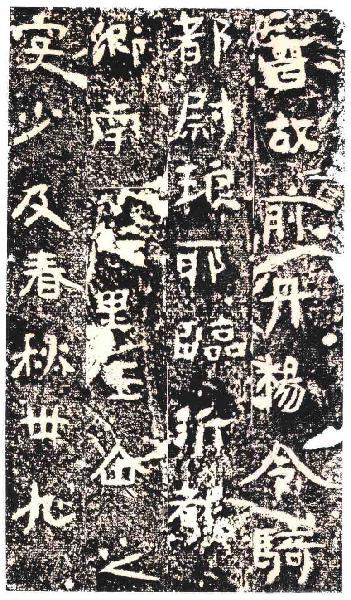 晉故前丹楊令騎
都尉琅耶臨沂都
鄉南仁里王仚之
字少及春秋卅九